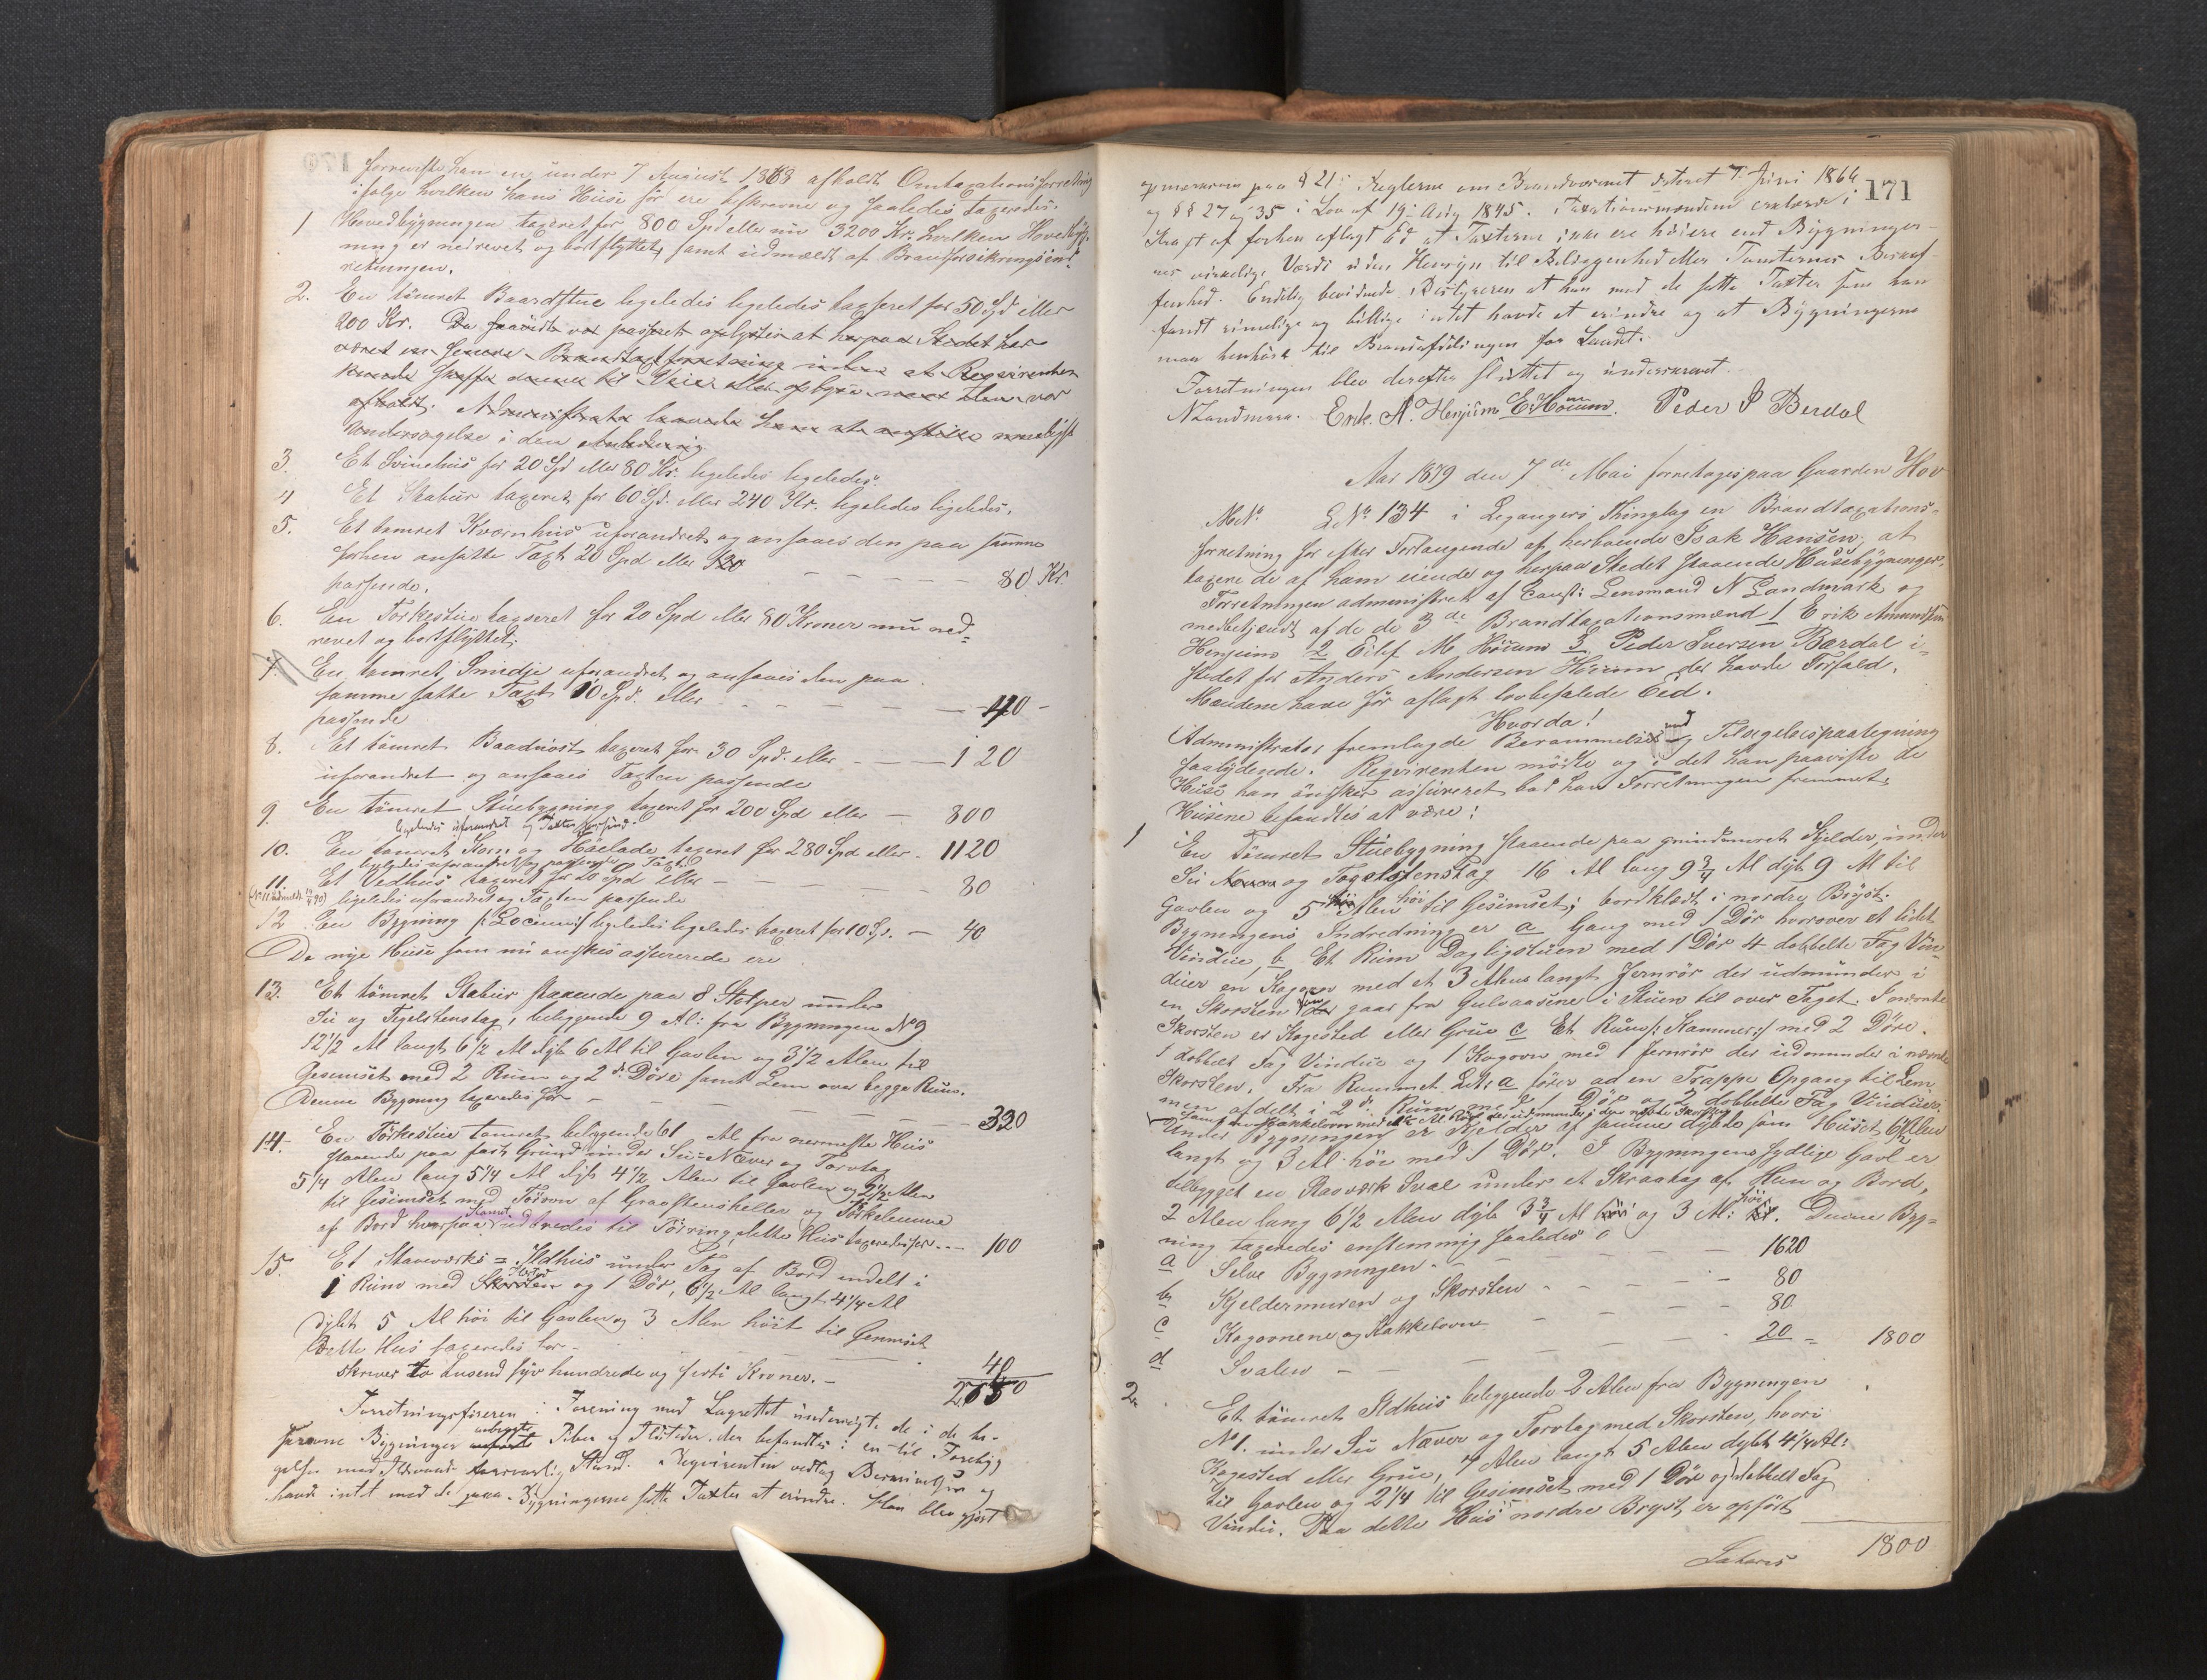 foreviste han en under 7 August 1868 afholdt Omtaxationsforretning
ifølge hvilken hans Huse før ere beskrevne og saaledes taxeredes.
1 Hovedbygningen taxeret for 800 Spd eller nu 3200 Kr. hvilken Hovedbyg-
ning er nedrevet og bortflyttet, samt udmældt af Brandforsikringsind-
retningen.
2. En tømret Baardstue ligeledes ligeledes taxseret for 50 Spd eller
200 Kr. Da passeret oplystes at herpaa Stedet har
været en Brandtaxtforretning inden at Reqvirenten
kunde skaffe denne til Veie eller opgive naar den var
afholdt. Administrator lovede ham at anstille nøieligst
Undersøgelse i den Anledning
3. Et Svinehus for 20 Spd eller 80 Kr. ligeledes ligeledes.
4 Et Stabur taxeret for 60 Spd. eller 240 Kr. ligeledes ligeledes.
5. Et tømret Kvernhus uforandret og ansaaes den paa samme
forhen ansatte Taxt 20 Spd eller
passende. 80 Kr.
6. En Tørkestue taxseret for 20 Spd eller 80 Kroner nu ned-
revet og bortflyttet.
7. En tømret Smedje uforandret og ansaaes den paa
samme satte Taxt 10 Spd. eller 40
passende
8. Et tømret Baadnøst taxeret for 30 Spd. eller 120
uforandret og ansaaes Taxten passende
9. En tømret Stuebygning taxeret for 200 Spd eller 800
ligeledes uforandret og Taxten passende.
10. En tømret Korn og Høelade taxeret for 280 Spd eller 1120
ligeledes uforandret og passende Taxt
11. Et Vedhus taxeret for 20 Spd eller 80
(No 11 udmeldt 90) ligeledes uforandret og Taxten passende
12 En Bygning /: Locium :/ ligeledes ligeledes taxeret for 10 Sp. 40
De nye Huse som nu ønskes assurerede ere
13. Et tømret Stabur staaende paa 8 Stolper under
Su og Teglstenstag, beliggende 9 Al: fra Bygningen No 9
12 1/2 Al langt 6 1/2 Al dyb 6 Al til Gavlen og 3 1/2 Alen til
Gesemset med 2 Rum og 2de Døre samt Lem over begge Rum.
Denne Bygning taxeredes for 320
14. En Tørkestue tømret beliggende 61 Al fra nermeste Hus
staaende paa fast Grund under Su- Næver og Torvtag
5 1/4 Alen lang 5 1/4 Al dyb 4 1/2 Alen til Gavlen og 2 1/2 Alen
til Gesimset med Tørovn af Graastensheller og Tørkelemme
af Bord hvorpaa Kornet udbredes til Tørring, dette Hus taxeredes for 100
15. Et Stavværks = Ildhus under Tag af Bord indelt i
1 Rum med Ildsted og 1 Dør, 6 1/2 Al langt 4 1/4 Al
dybt 5 Al høi til Gavlen og 3 Alen høit til Gesimset
Dette Hus taxeredes for 40
skriver to tusend syv hundrede og firti Kroner. -
Forretningsføreren i Forening med Lagrettet undersøgte de i de be-
skrevne Bygninger anbragte Piber og Ildsteder, der befandtes i en til Forebyg-
gelse mod Ildsvaade forsvarlig Stand. Reqvirenten vedtog Beramningen og
havde intet mod de paa Bygningerne satte Taxter at erindre. Han blev gjort
171
opmærksom paa § 21 i Reglerne om Brandvæsenet dateret 7. Juni 1864
og §§ 27 og 35 i Lov af 19. Aug 1845. Taxationsmændene erklærede i
Kraft af forhen aflagt Ed at Taxterne ikke ere høiere end Bygninger-
nes virkelige Værdi uden Hensyn til Beliggenhed eller Tomternes Beskaf-
fenhed. Endelig bevidnede Bestyreren at han med de satte Taxter som han
fandt rimelige og billige intet havde at erindre og at Bygningerne
maa henhøre til Brandafdelingen for Landet.
Forretningen blev derefter sluttet og underskrevet.
N Landmark. Erik A. Henjum E. M. Høium. Peder I Berdal
Aar 1879 den 7de Mai foretoges paa Gaarden Hov
MNo. LNo. 134 i Leganger Thinglag en Brandtaxations-
forretning for efter Forlangende af herboende Isak Hansen, at
taxere de af ham eiende og herpaa Stedet staaende Husebygninger.
Forretningen administreret af Const: Lensmand N Landmark og
medbetjendt af de 3de Brandtaxationsmænd 1 Erik Amundsen
Henjum 2 Eilif M Høium 3. Peder Iversen Bærdal i-
stedet for Anders Andersen Høium der havde Forfald.
Mændene have før aflagt lovbefalede Eed.
Hvorda!
Administrator fremlagde Berammelse med Tilsigelsespaategning
saalydende. Reqvirenten mødte og i det han paaviste de
Huse han ønsker assureret bad han Forretningen fremmet.
Husene befandtes at være:
1 En tømret Stuebygning staaende paa grundmuret Kjelder, under
Su og Teglstenstag 16 Al lang 9 3/4 Al dyb 9 Al til
Gavlen og 5 Alen høi til Gesimset; bordklædt i nordre Bryst.
Bygningens Indredning er a Gang med 1 Dør hvorover et lidet
Vindue, b Et Rum Dagligstuen med 1 Dør 4 dobbelte Fag Vin-
duer en Kogovn med et 3 Alens langt Jernrør der udmunder i
en Skorsten som gaar fra Gulvaasene i Stuen til over Taget. I nævnte
Skorsten er Kogested eller Grue c Et Rum /: Kammer :/ med 2 Døre.
1 dobbelt Fag Vindue og 1 Kogovn med 1 Jernrør der udmunder i nævnte
Skorsten. Fra Rummet Litr. a fører ad en Trappe Opgang til Lem
men afdelt i 2de Rum med 1 Dør og 2 dobbelte Fag Vinduer.
samt en Kakkelovn med Al Rør der udmunder i den nævnte Skorsten
Under Bygningen er Kjelder af samme dybde som Huset, 6 1/2 Alen
langt og 3 Al. høi med 1 Dør. I Bygningens sydlige Gavl er
tilbygget en Stavværk Sval under et Skraatag af Hun og Bord,
2 Alen lang 6 1/2 Alen dyb 3 3/4 Al og 3 Al: høi. Denne Byg-
ning taxeredes enstemmig saaledes
a Selve Bygningen 1620
b Kjeldermuren og Skorsten 80
c Kogovnene og Kakkelovne 80
d Svalen 20 1800
2. Et tømret Ildhus beliggende 2 Alen fra Bygningen
No 1. under Su Næver og Torvtag med Skorsten, hvori
Kogested eller Grue, 7 Alen langt 5 Alen dybt 4 1/4 Al:
til Gavlen og 2 1/4 til Gesimset med 1 Dør og 1 dobbelt Fag
Vindu. Paa dette Hus' nordre Bryst er opført
Lateris 1800